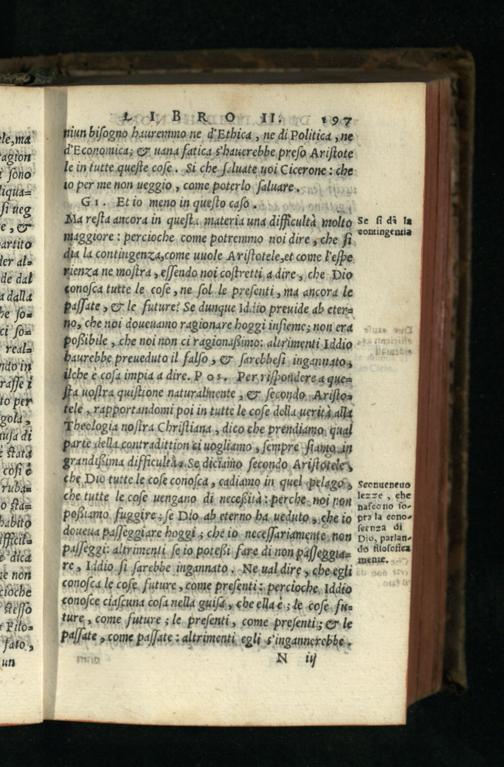 LIBRO II. 197
niun bisogno hauremmo ne d'Ethica, ne di Politica, ne
d'Economica; & uana fatica s'haurebbe preso Aristote
le in tutte queste cose. Si che saluate uoi Cicerone: che
io per me non ueggio, come poterlo saluare.
GI. Et io meno in questo caso.
Ma resta ancora in questa materia una difficultà molto
maggiore: percioche come potremmo noi dire, che si
dia la contingenza, come uuole Aristotele, et come l'espe
rienza ne mostra, essendo noi costretti a dire, che Dio
conosca tutte le cose, ne sol le presenti, ma ancora le
passate, & le future? Se dunque Iddio preuide ab eter=
no, che noi doueuamo ragionare hoggi insieme; non era
possibile, che noi non ci ragionassimo: altrimenti Iddio
haurebbe preueduto il falso, & sarebbesi ingannato,
ilche è cosa impia a dire. POS. Per rispondere a que=
sta uostra quistione naturalmente, & secondo Aristo=
tele, rapportandomi poi in tutte le cose della uerità alla
Theologia nostra Christiana, dico che prendiamo qual
parte della contradittion ci uogliamo, sempre siamo in
grandissima difficultà. Se diciamo secondo Aristotele,
che Dio tutte le cose conosca, cadiamo in quel pelago,
che tutte le cose uengano di necessità: perche noi non
possiamo fuggire; se Dio ab eterno ha ueduto, che io
doueua passeggiare hoggi; che io necessariamente non
passeggi: altrimenti se io potessi fare di non passeggia=
re, Iddio si sarebbe ingannato. Ne ual dire, che egli
conosca le cose future, come presenti: percioche Iddio
conosce ciascuna cosa nella guisa, che ella è; le cose fu=
ture, come future; le presenti, come presenti; & le
passate, come passate: altrimenti egli s'ingannerebbe.
N iij
Se si dà la
contingentia
Sconueneuo
lezze, che
nascono so-
pra la cono-
scenza di
Dio, parlan-
do filosofica
mente.